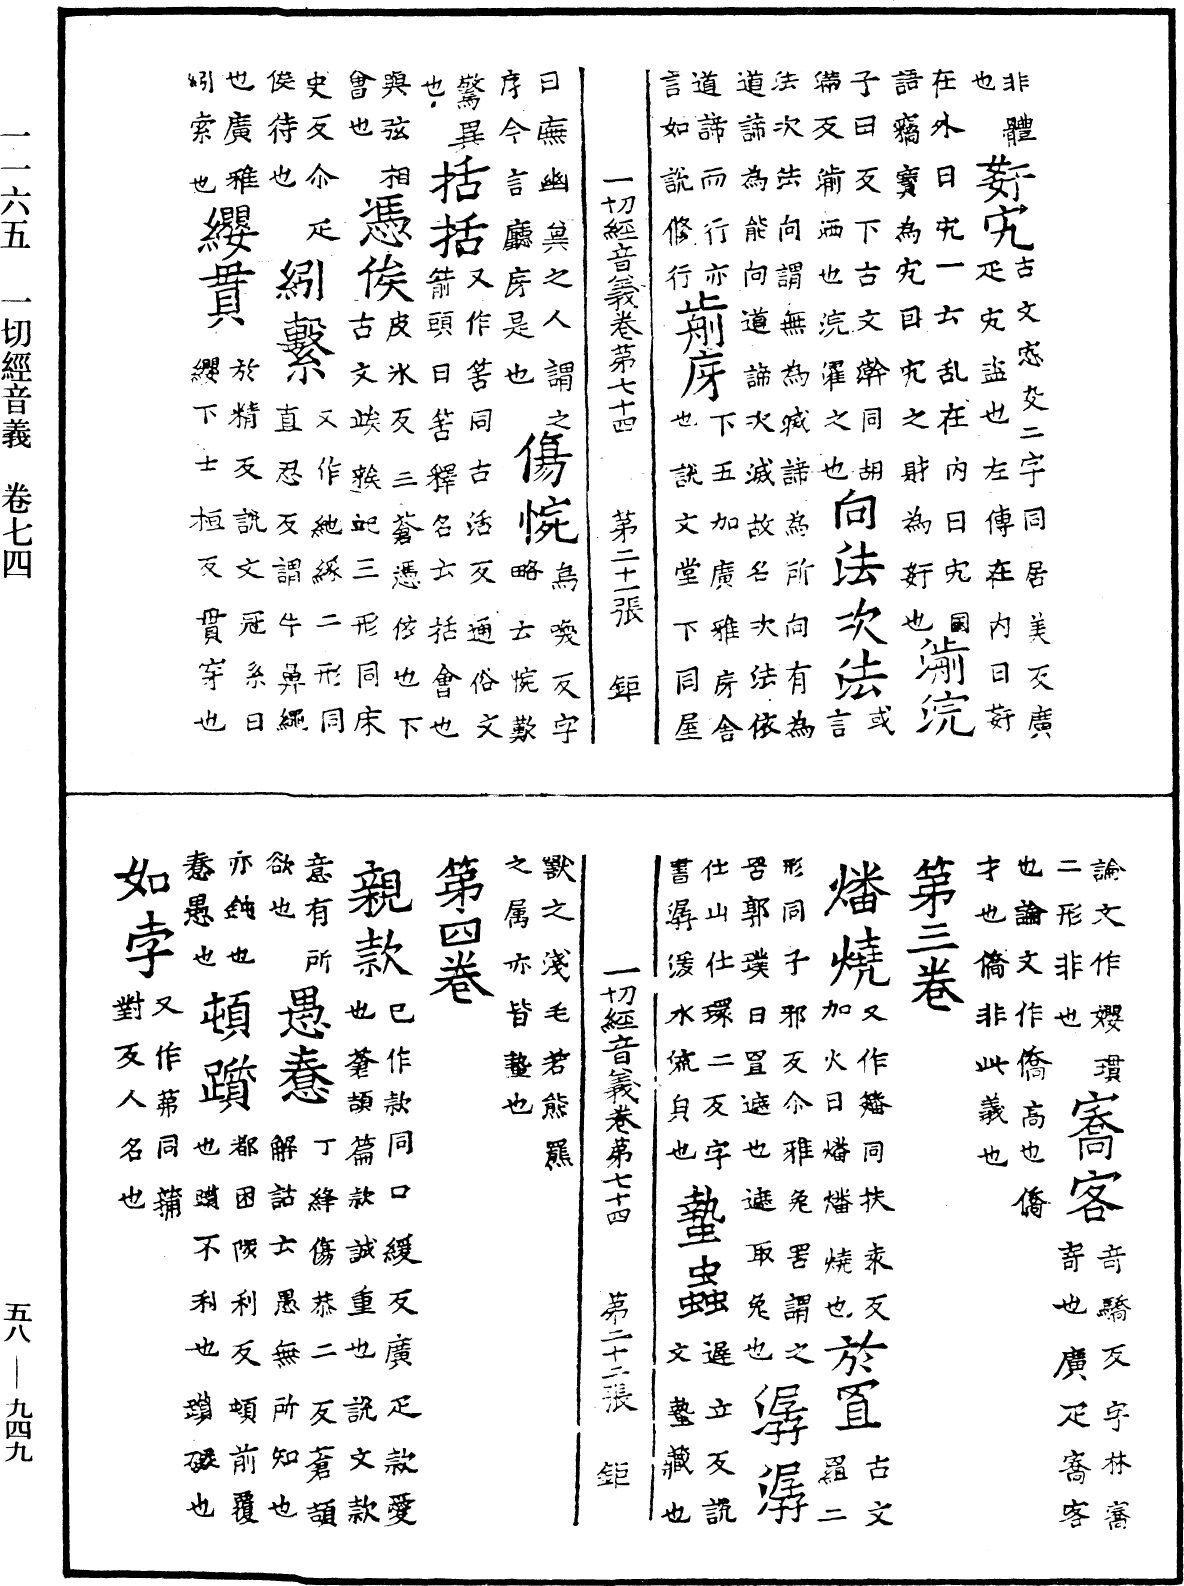 非體姧宄古文𡧱㕛二字同居美反廣
也姧宄疋宄盜也左傳在內曰姧
在外曰宄一云亂在內曰宄國
語竊寶為宄曰宄之財為姧也湔浣
子曰反下古文澣同胡
滿反湔洒也浣濯之也向法次法或言
法次法向謂無為滅諦為所向有為
道諦為能向道諦次滅故名次法依
道諦而行亦下五加廣雅房舍
言如說修行廊房也說文堂下同屋
一切經音義卷第七十四 第二十一張 鉅
曰廡幽冥之人謂之傷惋烏喚反字
序今言廳房是也略云惋歎
驚異括括又作筈同古活反通俗文
也箭頭曰筈釋名云括會也
與弦相憑俟皮冰反三蒼憑依也下
會也古文竢䇃䄊三形同床
史反尒疋紖繫又作紖緣二形同
俟待也直忍反謂牛鼻繩
也廣雅纓貫於精反說文冠系曰
紖索也纓下士桓反貫穿也
論文作孾瓌㝯客音驕反字林㝯
二形非也寄也廣疋㝯客
也論文作僑高也僑
才也僑非此義也
第三卷
燔燒又作𤏲同扶袁反
加火曰燔燔燒也於罝古文䍜二
形同子邪反尒雅兔罟謂之
罟郭璞曰罝遮也遮取兔也潺潺
仕山仕環二反字
書潺湲水流貌也蟄蟲遲立反說
文蟄藏也
一切經音義卷第七十四 第二十二張 鉅
獸之淺毛若熊羆
之属亦皆蟄也
第四卷
親款已作款同口緩反廣疋款愛
也蒼頡篇款誠重也說文款
意有所愚惷丁絳傷恭二反蒼頡
欲也解詁云愚無所知也
亦鈍也頓躓都困陟利反頓前覆
惷愚也也躓不利也躓礙也
如孛又作茀同蒲
對反人名也
一一六五 一切經音義 卷七四
五八—九四九